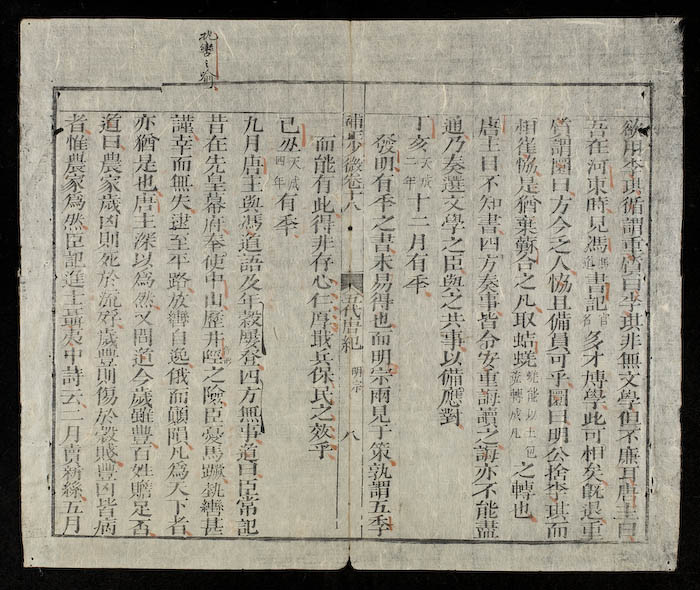 欲用李琪循謂重誨曰李琪非無文學但不廉耳唐主曰
吾在河東時見馮道書記多才博學此可相矣旣退重
誨謂圜曰方今乏人協且備員可乎圜曰明公捨李琪而
相崔協是猶棄蘇合之丸取蛣蜣蛣蜣以土包糞轉成丸之轉也
唐主曰不知書四方奏事皆令安重誨讀之誨亦不能盡
通乃奏選文學之臣與之共事以備應對
丁亥天成二年十二月有秊
發明有秊之書未易得也而明宗兩見于策孰謂五季
補正少微卷十八 五代唐紀 明宗 八
而能有此得非存心仁厚戢兵保民之效乎
己丑天成四年有秊
九月唐主與馮道語及年穀屢登四方無事道曰臣常記
昔在先皇幕府奉使中山歷井陘之險臣憂馬蹶執轡甚
謹幸而無失逮至平路放轡自逸俄而顛隕凡爲天下者
亦猶是也唐主深以爲然又問道今歲雖豐百姓贍足否
道曰農家歲凶則死於流殍歲豐則傷於穀賤豐凶皆病
者惟農家爲然臣記進士聶夷中詩云二月賣新絲五月